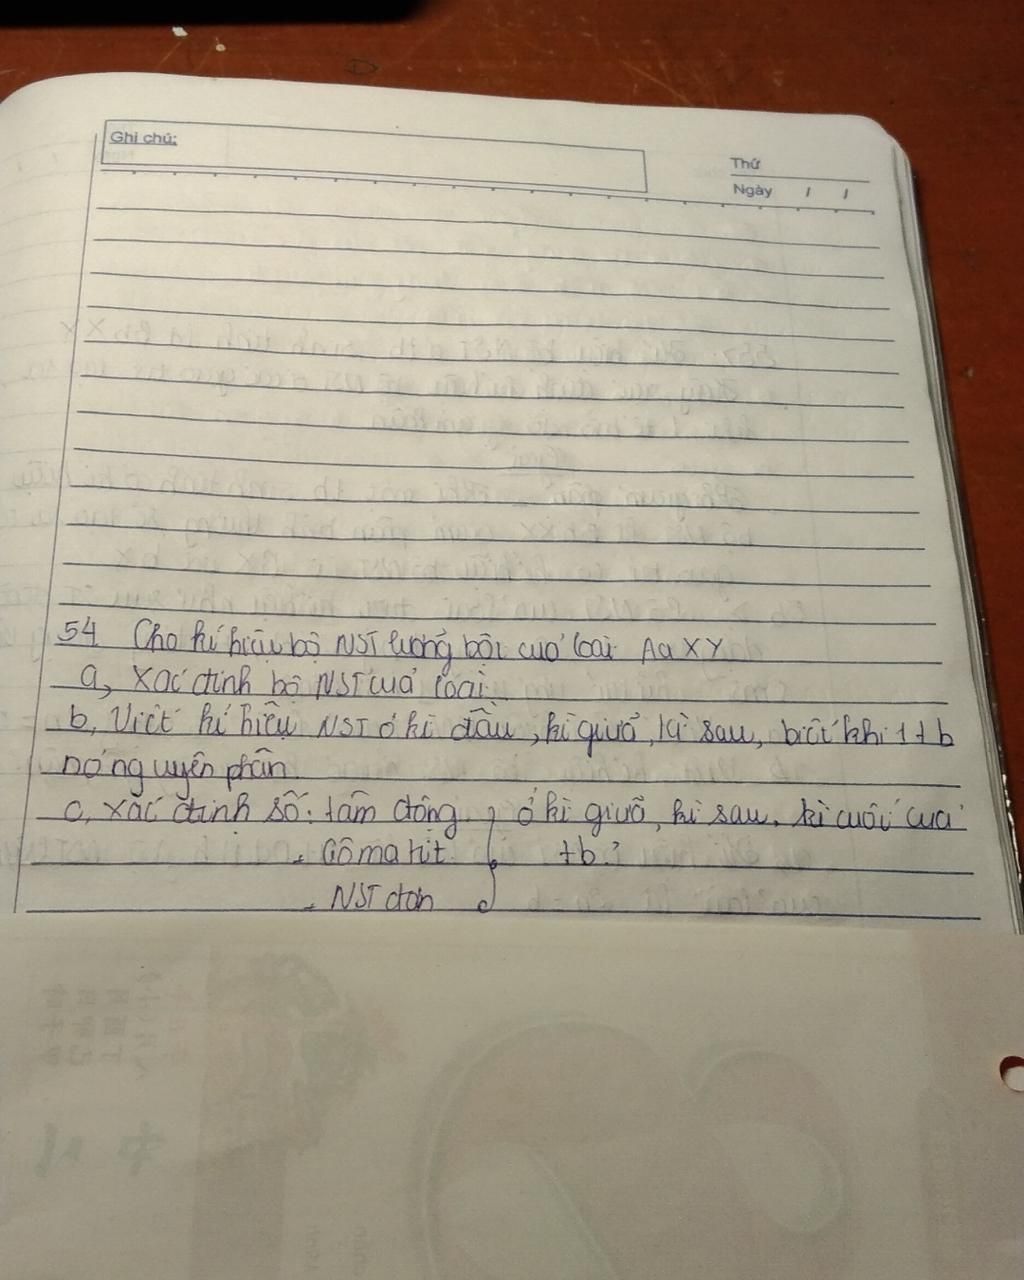 Ghi chú:
Thứ
Ngày / /
54 Cho kí hiệu bộ NST lưỡng bội của loài AaXY
a, Xác định bộ NST của loài.
b, Viết kí hiệu NST ở kì đầu, kì giữa, kì sau, biết khi 1 tb
nó nguyên phân.
c, xác định số: tâm động } ở kì giữa, kì sau, kì cuối của
. Cômatit. tb?
. NST đơn